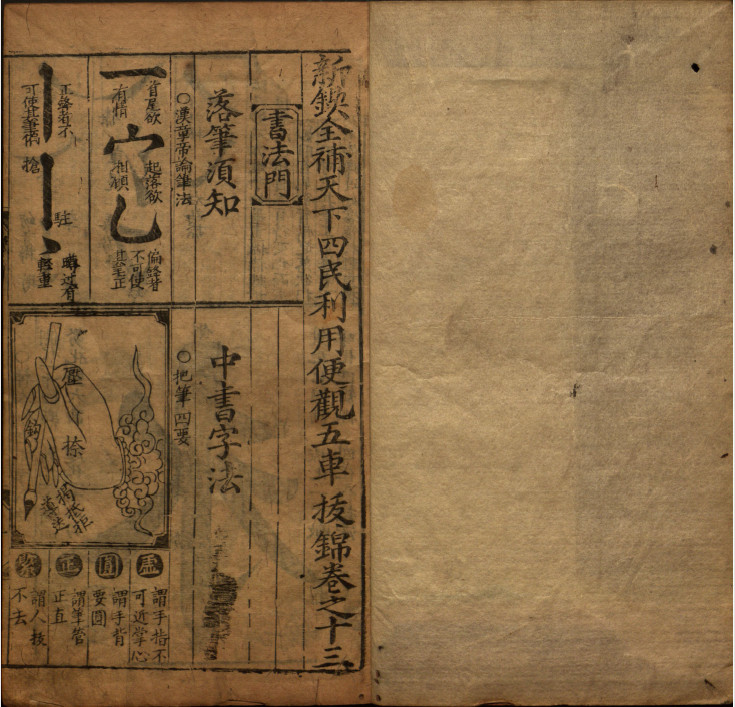 新鍥全補天下四民利用便觀五車拔錦卷之十三
書法門
落筆須知
○漢章帝論筆法
首尾欲
有情
起落欲
相顧
偏鋒者
不可使
其至正
正鋒者不
可使其筆
搶
駐
蹲過有
輕重
中書字法
○把筆四要
壓
捺
鈎
揭
抵
拒
導
送
虛
謂手指不
可近掌心
圓
謂手背
要圓
正
謂筆管
正直
緊
謂人拔
不去